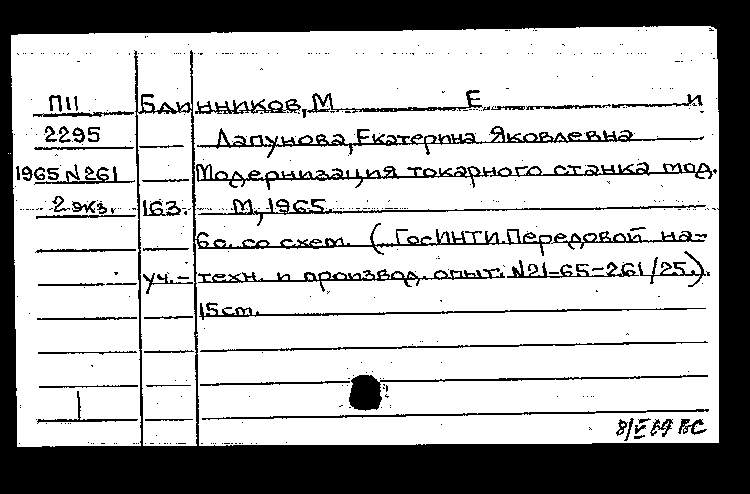 П11 Блинников, М Е и
2295 Лапунова, Екатерина Яковлевна
1965 N261 Модернизация токарного станка мод.
2 экз. 163. М, 1965.
6с. со схем. (ГосИНТИ. Передовой на-
уч.-техн. и производ. опыт. N21-65-261/25.).
15 ст.
8/V 69 ВС